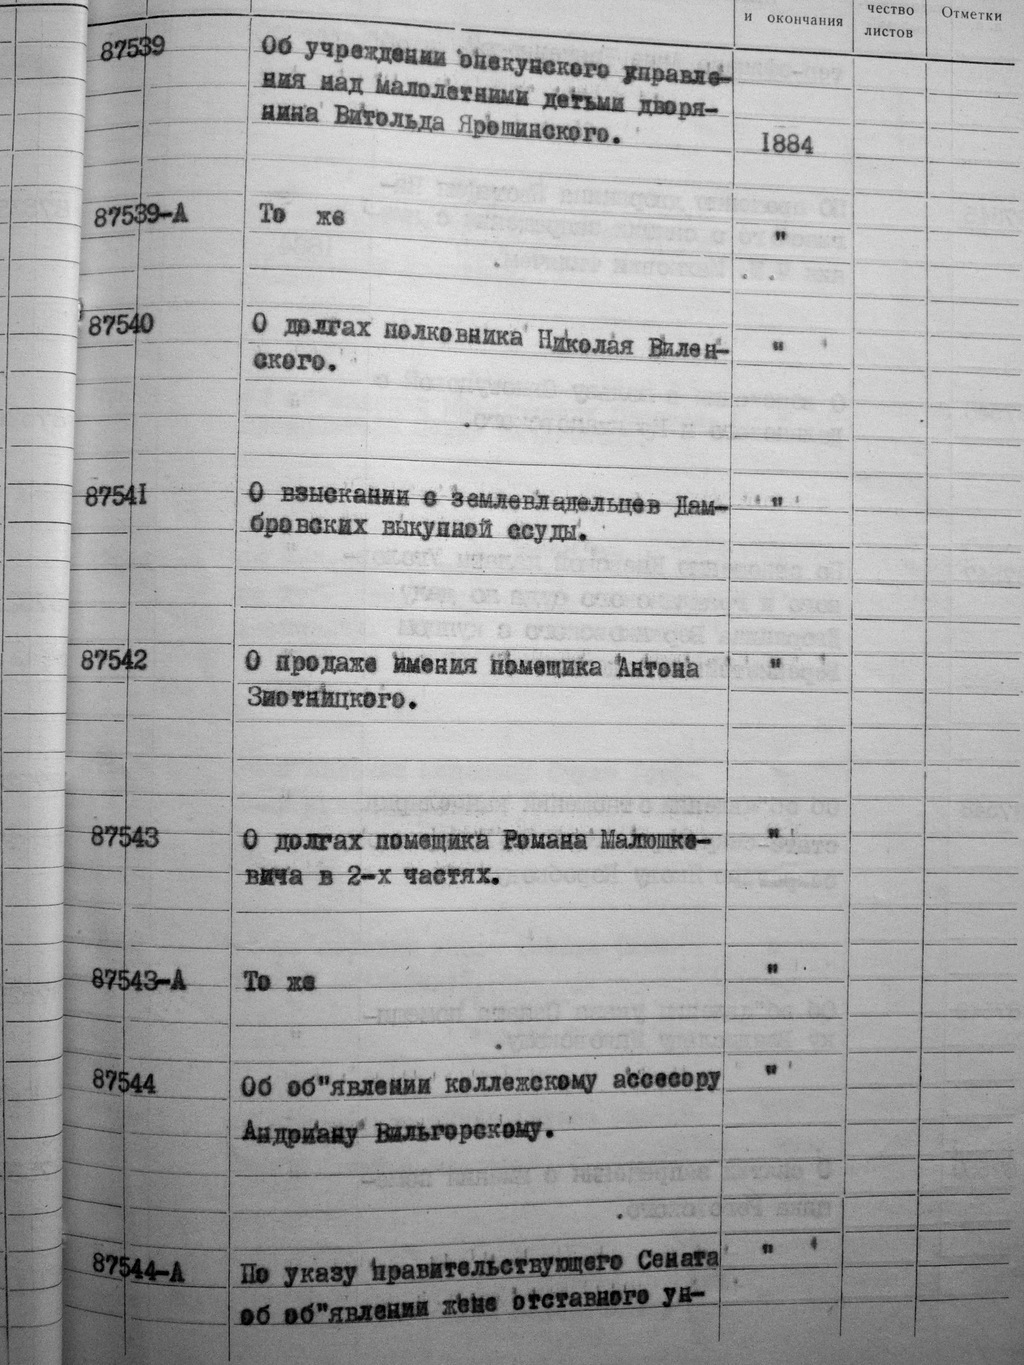 и окончания
чество
листов
Отметки
87539
Об учреждении опекунского управле-
ния над малолетними детьми дворя-
нина Витольда Ярошинского.
1884
87539-А
То же
"
87540
О долгах полковника Николая Вилен-
ского.
"
87541
О взыскании с землевладельцев Дам-
бровских выкупной ссуды.
"
87542
О продаже имения помещика Антона
Злотницкого.
"
87543
О долгах помещика Романа Малюшке-
вича в 2-х частях.
"
87543-А
То же
"
87544
Об об"явлении коллежскому ассесору
Андриану Вильгорскому.
"
87544-А
По указу правительствующего Сената
об об"явлении жене отставного ун-
"